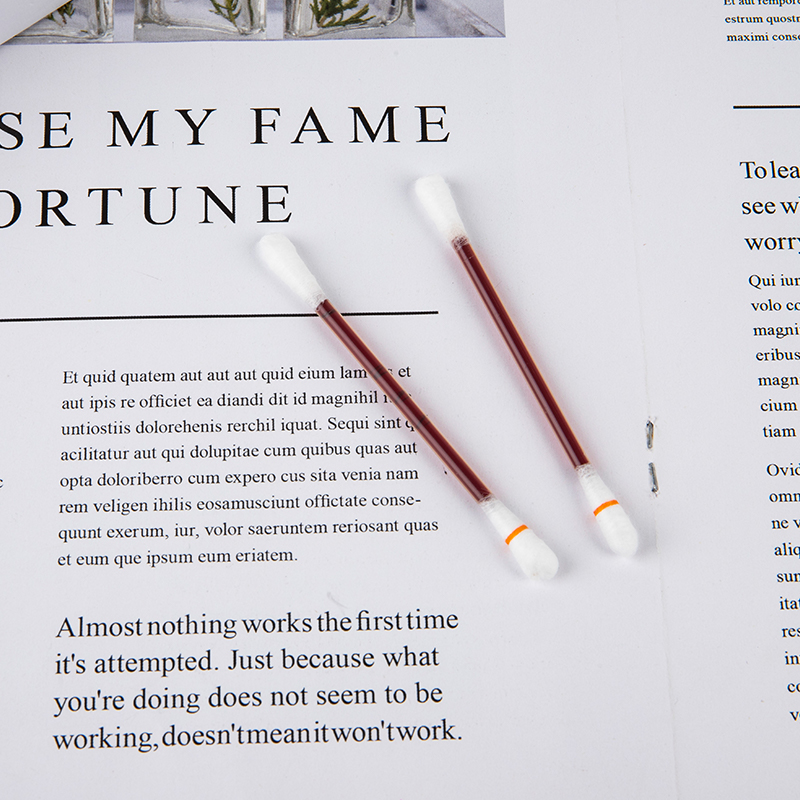 SE MY FAME
ORTUNE
Et quid quatem aut aut aut quid eium et
aut ipis re officiet ea diandi dit id magnihil
untiostiis dolorehenis rerchil iquat. Sequi sint
acilitatur aut qui dolupitae cum quibus quas aut
opta doloriberro cum expero cus sita venia nam
rem veligen ihilis eosamusciunt offictate conse-
quunt exerum, iur, volor saeruntem reriosant quas
et eum que ipsum eum eriatem.
Almost nothing works the first time
it's attempted. Just because what
you're doing does not seem to be
working, doesn't mean it won't work.
c
estrum quostr
maximi conse
To lea
see w
worry
Qui iur
volo co
magni
eribus
magn
cium
tiam
Ovid
omn
ne v
aliq
sun
itat
res
in
co
v